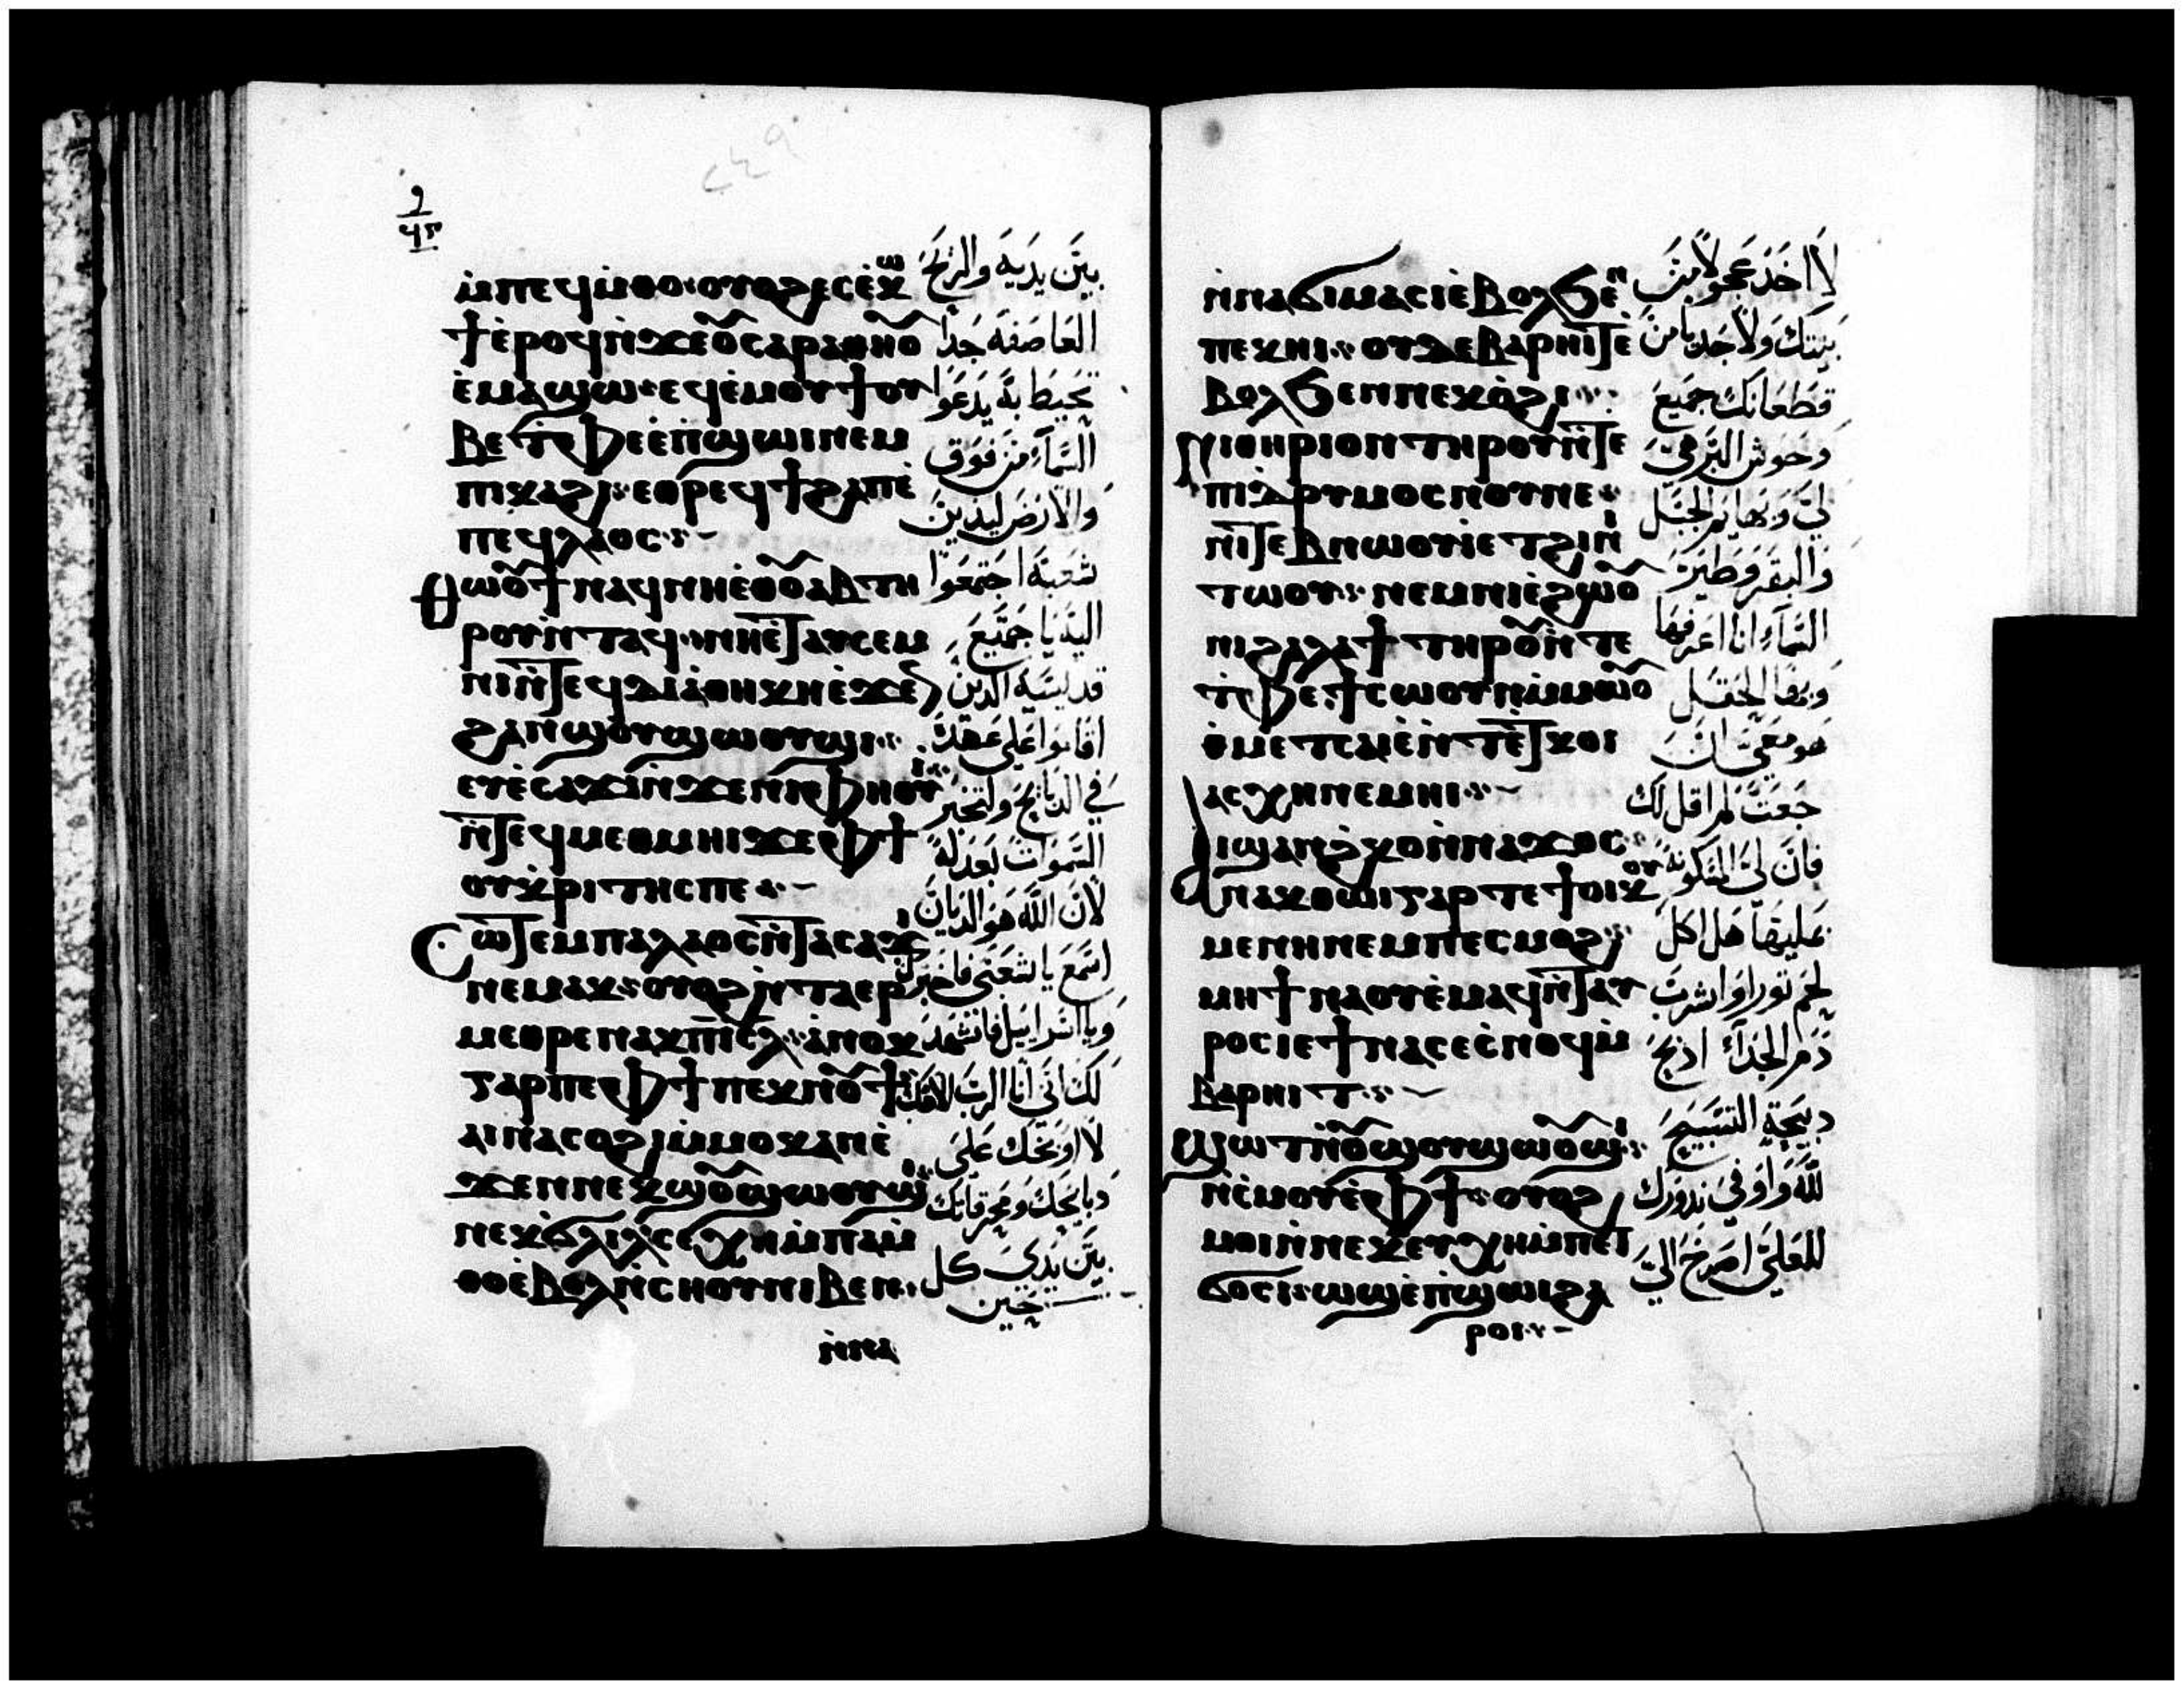 ⲙ̇ⲡⲉϥⲙ̇ⲑⲟ · ⲟⲩⲟϩ ⲉⲥⲉ̇ⲕⲱ
ϯ ⲉ̇ⲣⲟϥ ⲛ̇ϫⲉ ⲟ̅ⲥⲁⲣⲁⲑⲏⲟ̅
ⲉ̇ⲙⲁϣⲱ · ⲉϥⲉ̇ⲙⲟⲩϯ ⲟⲩ
ⲃⲉ ⲧ̇ⲫⲉ ⲉ̇ⲡ̇ϣⲱⲓ ⲛⲉⲙ
ⲡⲓⲕⲁϩⲓ · ⲉⲑⲣⲉϥϯϩⲁⲡ ⲉ̇
ⲡⲉϥⲗⲁⲟⲥ
ⲑⲱⲟ̅ϯ ⲛⲁϥ ⲛⲏⲉ̇ⲑⲟ̅ⲁⲃ ⲧⲏ
ⲣⲟⲩ ⲛ̇ⲧⲁϥ · ⲛⲏⲉ̇ⲧⲁⲩⲥⲉⲙ
ⲛⲓ ⲛ̇ⲧⲉϥⲇⲓⲁⲑⲏⲕⲏ ⲉ̇ϫⲉ
ϩⲁⲛϣⲟⲩϣⲱⲟⲩϣⲓ
ⲉⲩⲉ̇ⲥⲁϫⲓ ⲛ̇ϫⲉ ⲛⲓⲫⲏⲟⲩⲓ̇
ⲛ̇ⲧⲉϥⲙⲉⲑⲙⲏⲓ ϫⲉ ⲫϯ
ⲟⲩⲕ̇ⲣⲓⲧⲏⲥ ⲡⲉ
ⲥⲱⲧⲉⲙ ⲡⲁⲗⲁⲟⲥ ⲛ̇ⲧⲁⲥⲁϫⲓ
ⲛⲉⲙⲁⲕ · ⲟⲩⲟϩ ⲛ̇ⲧⲁⲉⲣ
ⲙⲉⲑⲣⲉ ⲛⲁⲕ ⲡⲓⲥ̅ⲗ · ⲁ̇ⲛⲟⲕ
ⲅⲁⲣ ⲡⲉ ⲫϯ ⲡⲉⲕⲛⲟ̅ϯ
ⲁⲓⲛⲁⲥⲟϩⲓ ⲙ̇ⲙⲟⲕ ⲁⲛ ⲉ̇
ϫⲉⲛ ⲛⲉⲕϣⲟ̅ϣⲱⲟⲩϣⲓ
ⲛⲉⲕϭⲗⲓⲗ ⲥⲉⲭⲏ ⲙ̇ⲡⲁⲙ̇
ⲑⲟ ⲉ̇ⲃⲟⲗ ⲛ̇ⲥⲏⲟⲩ ⲛⲓⲃⲉⲛ
ⲛ̇ⲛⲁ
بين يديه والريح
العاصفة جدا
تحيط به يدعوا
السماء من فوق
والارض ليدين
شعبه اجتمعوا
اليه يا جميع
قديسيه الذين
اقاموا على عهده
في الدبايح وتخبر
السموات بعدله
لان الله هو الديان
اسمع يا شعبي فاخبرك
ويا اسراييل فاشهد
لك اني انا الرب الاهك
لا اوبخك على
دبايحك ومحرقاتك
بين يدي كل
حين
ⲛ̇ⲛⲁϭⲓ ⲙⲁⲥⲓ ⲉ̇ⲃⲟⲗ ϧⲉⲛ
ⲡⲉⲕⲏⲓ · ⲟⲩⲇⲉ ⲃⲁⲣⲏⲓⲧ ⲉ̇
ⲃⲟⲗ ϧⲉⲛ ⲛⲉⲕⲟ̇ϩⲓ
ⲛⲓⲑⲏⲣⲓⲟⲛ ⲧⲏⲣⲟⲩ ⲛ̇ⲧⲉ
ⲡⲓⲇⲣⲩⲙⲟⲥ ⲛⲟⲩⲓ ⲛⲉ
ⲛⲓⲧⲉⲃⲛⲱⲟⲩⲓ̇ ⲉⲧϩⲓ ⲛⲓ̇
ⲧⲱⲟⲩ · ⲛⲉⲙ ⲛⲓⲉ̇ϩⲱⲟ̅
ⲛⲓϩⲁⲗⲁϯ ⲧⲏⲣⲟ̅ ⲛ̇ⲧⲉ
ⲧ̇ⲫⲉ ϯⲥⲱⲟⲩⲛ ⲙ̇ⲙⲱⲟ̅
ⲟ̇ⲙⲉⲧⲥⲁⲓⲉ̇ ⲛ̇ⲧⲉ ⲧ̇ⲕⲟⲓ
ⲁⲥⲭⲏ ⲛⲉⲙⲏⲓ
ⲁⲓϣⲁⲛϩ̇ⲕⲟ ⲛ̇ⲛⲁϫⲟⲥ
ⲛⲁⲕ ⲑⲱⲓ ⲅⲁⲣ ⲧⲉ ϯⲟⲓⲕⲟⲩ
ⲙⲉⲛⲏ ⲛⲉⲙ ⲡⲉⲥⲙⲟϩ
ⲙⲏ ϯⲛⲁⲟⲩⲉⲙ ⲁϥ ⲛ̇ⲧⲁⲩ
ⲣⲟⲥ ⲓⲉ ϯⲛⲁⲥⲉ ⲥ̇ⲛⲟϥ ⲙ̇
ⲃⲁⲣⲏⲓⲧ
ϣⲱⲧ ⲛ̇ⲟ̅ϣⲟⲩϣⲱⲟ̅ϣⲓ
ⲛ̇ⲥ̇ⲙⲟⲩ ⲉ̇ⲫϯ · ⲟⲩⲟϩ
ⲙⲟⲓ ⲛ̇ⲛⲉⲕⲉⲩⲭⲏ ⲙ̇ⲡⲉⲧ
ϭⲟⲥⲓ · ⲱϣ ⲉ̇ⲡ̇ϣⲱⲓ ϩⲁ
ⲣⲟⲓ
لا اخذ عجولا من
بيتك ولا جديا من
قطعانك جميع
وحوش البر هي
لي وبهايم الجبل
والبقر وطيور
السماء انا اعرفها
وبها الحقل
هو معي ان
جعت لم اقل لك
فان لي المسكونة
عليها هل اكل
لحم ثور او اشرب
دم الجداء ادبح
دبيحة التسبيح
لله واوفي ندورك
للعلي اصرخ الي